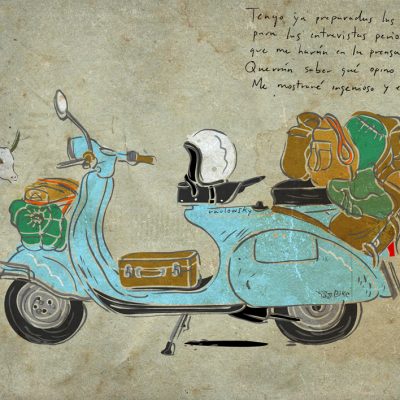 Tengo ya preparadas las
para las entrevistas perio
que me harán en la prensa
Querrán saber qué opino
Me mostraré ingenioso y e
pavlowsky